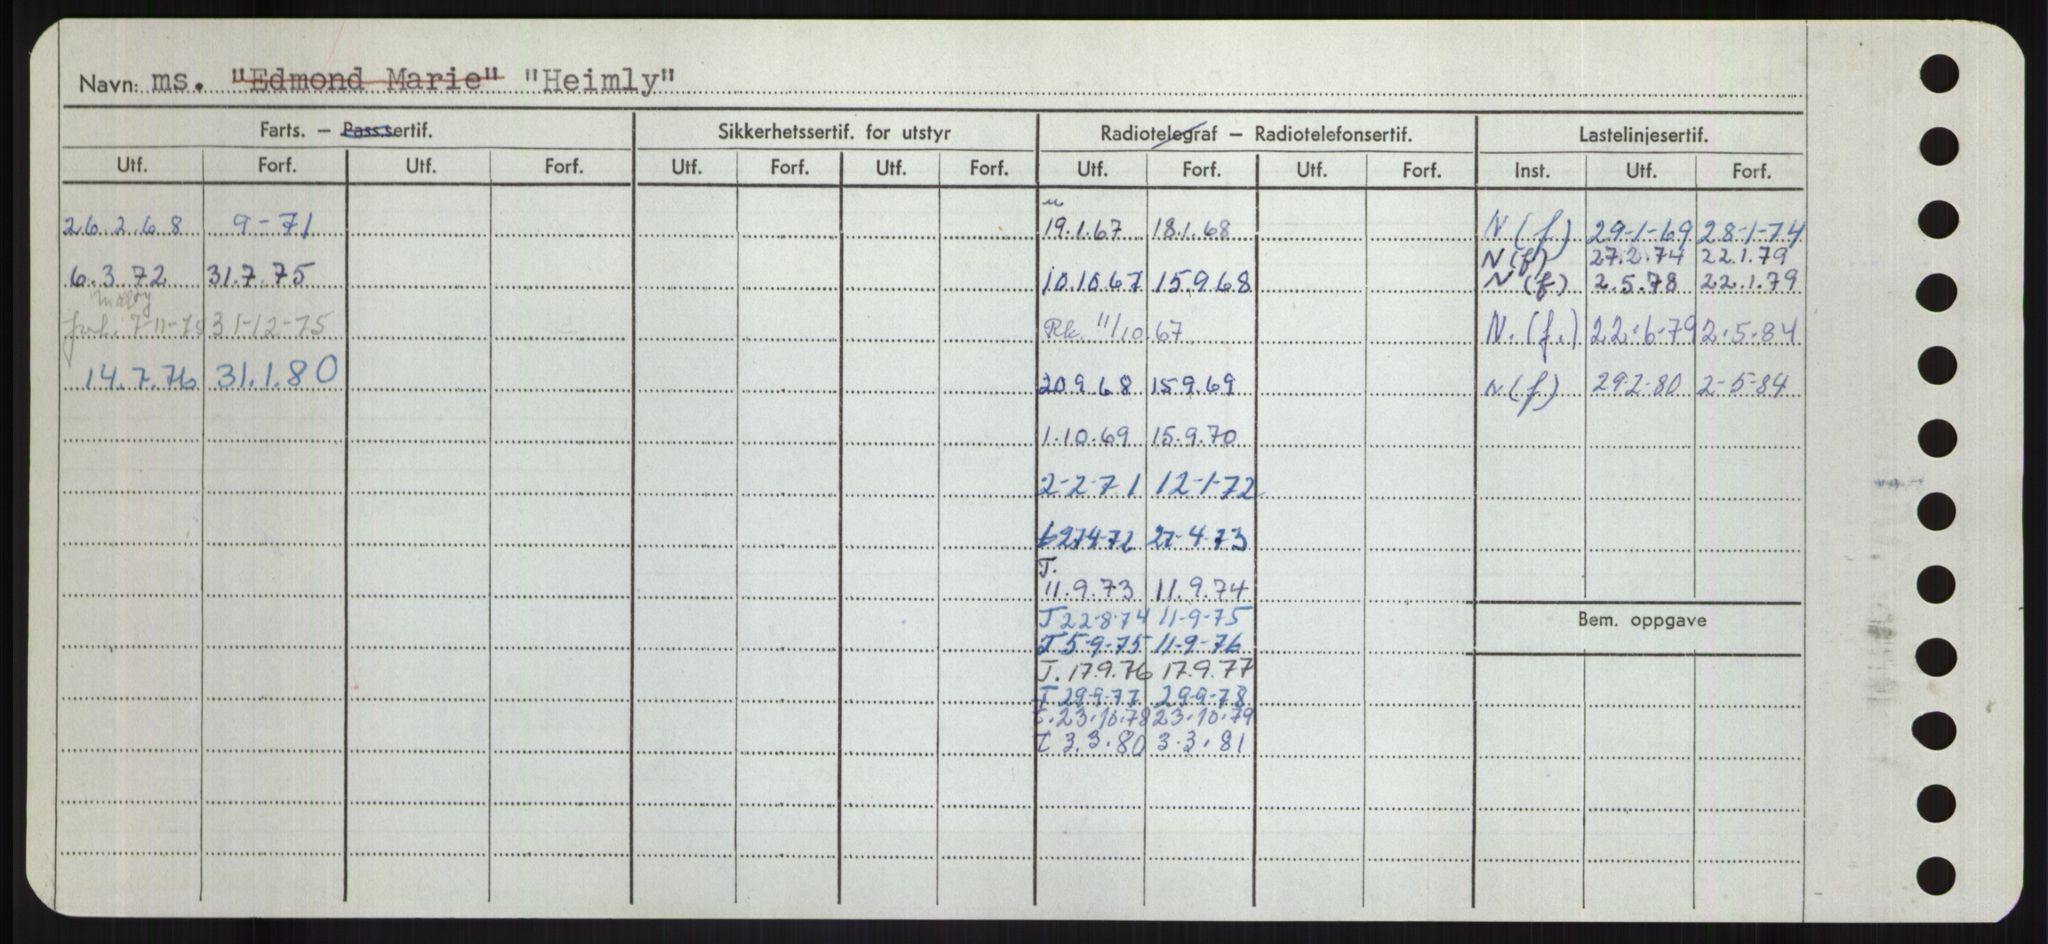 Navn: ms. "Edmond Marie" "Heimly"
Farts. – Passsertif. Sikkerhetssertif. for utstyr Radiotelegraf – Radiotelefonsertif. Lastelinjesertif.
Utf. Forf. Utf. Forf. Utf. Forf. Utf. Forf. Utf. Forf. Utf. Forf. Inst. Utf. Forf.
26.2.68 9-71 19.1.67 18.1.68 N (f) 29-1-69 28-1-74
N (f) 27.2.74 22.1.79
6.3.72 31.7.75 10.10.67 15.9.68 N (f) 2.5.78 22.1.79
7-11-75 31-12-75 Rk. 11/10.67 N. (f.) 22.6-79 2.5.84
14.7.76 31.1.80 20.9.68 15.9.69 N (f) 29.2-80 2-5-84
1.10.69 15.9.70
2-2-71 12-1-72
27.4.72 27-4-73
T.
11.9.73 11.9.74
T 22-8-74 11-9-75
Bem. oppgave
T 5-9-75 11-9-76
T. 17.9.76 17.9.77
T 29-9-77 29-9-78
t. 23.10.78 23.10.79
t 3.3.80 3.3.81